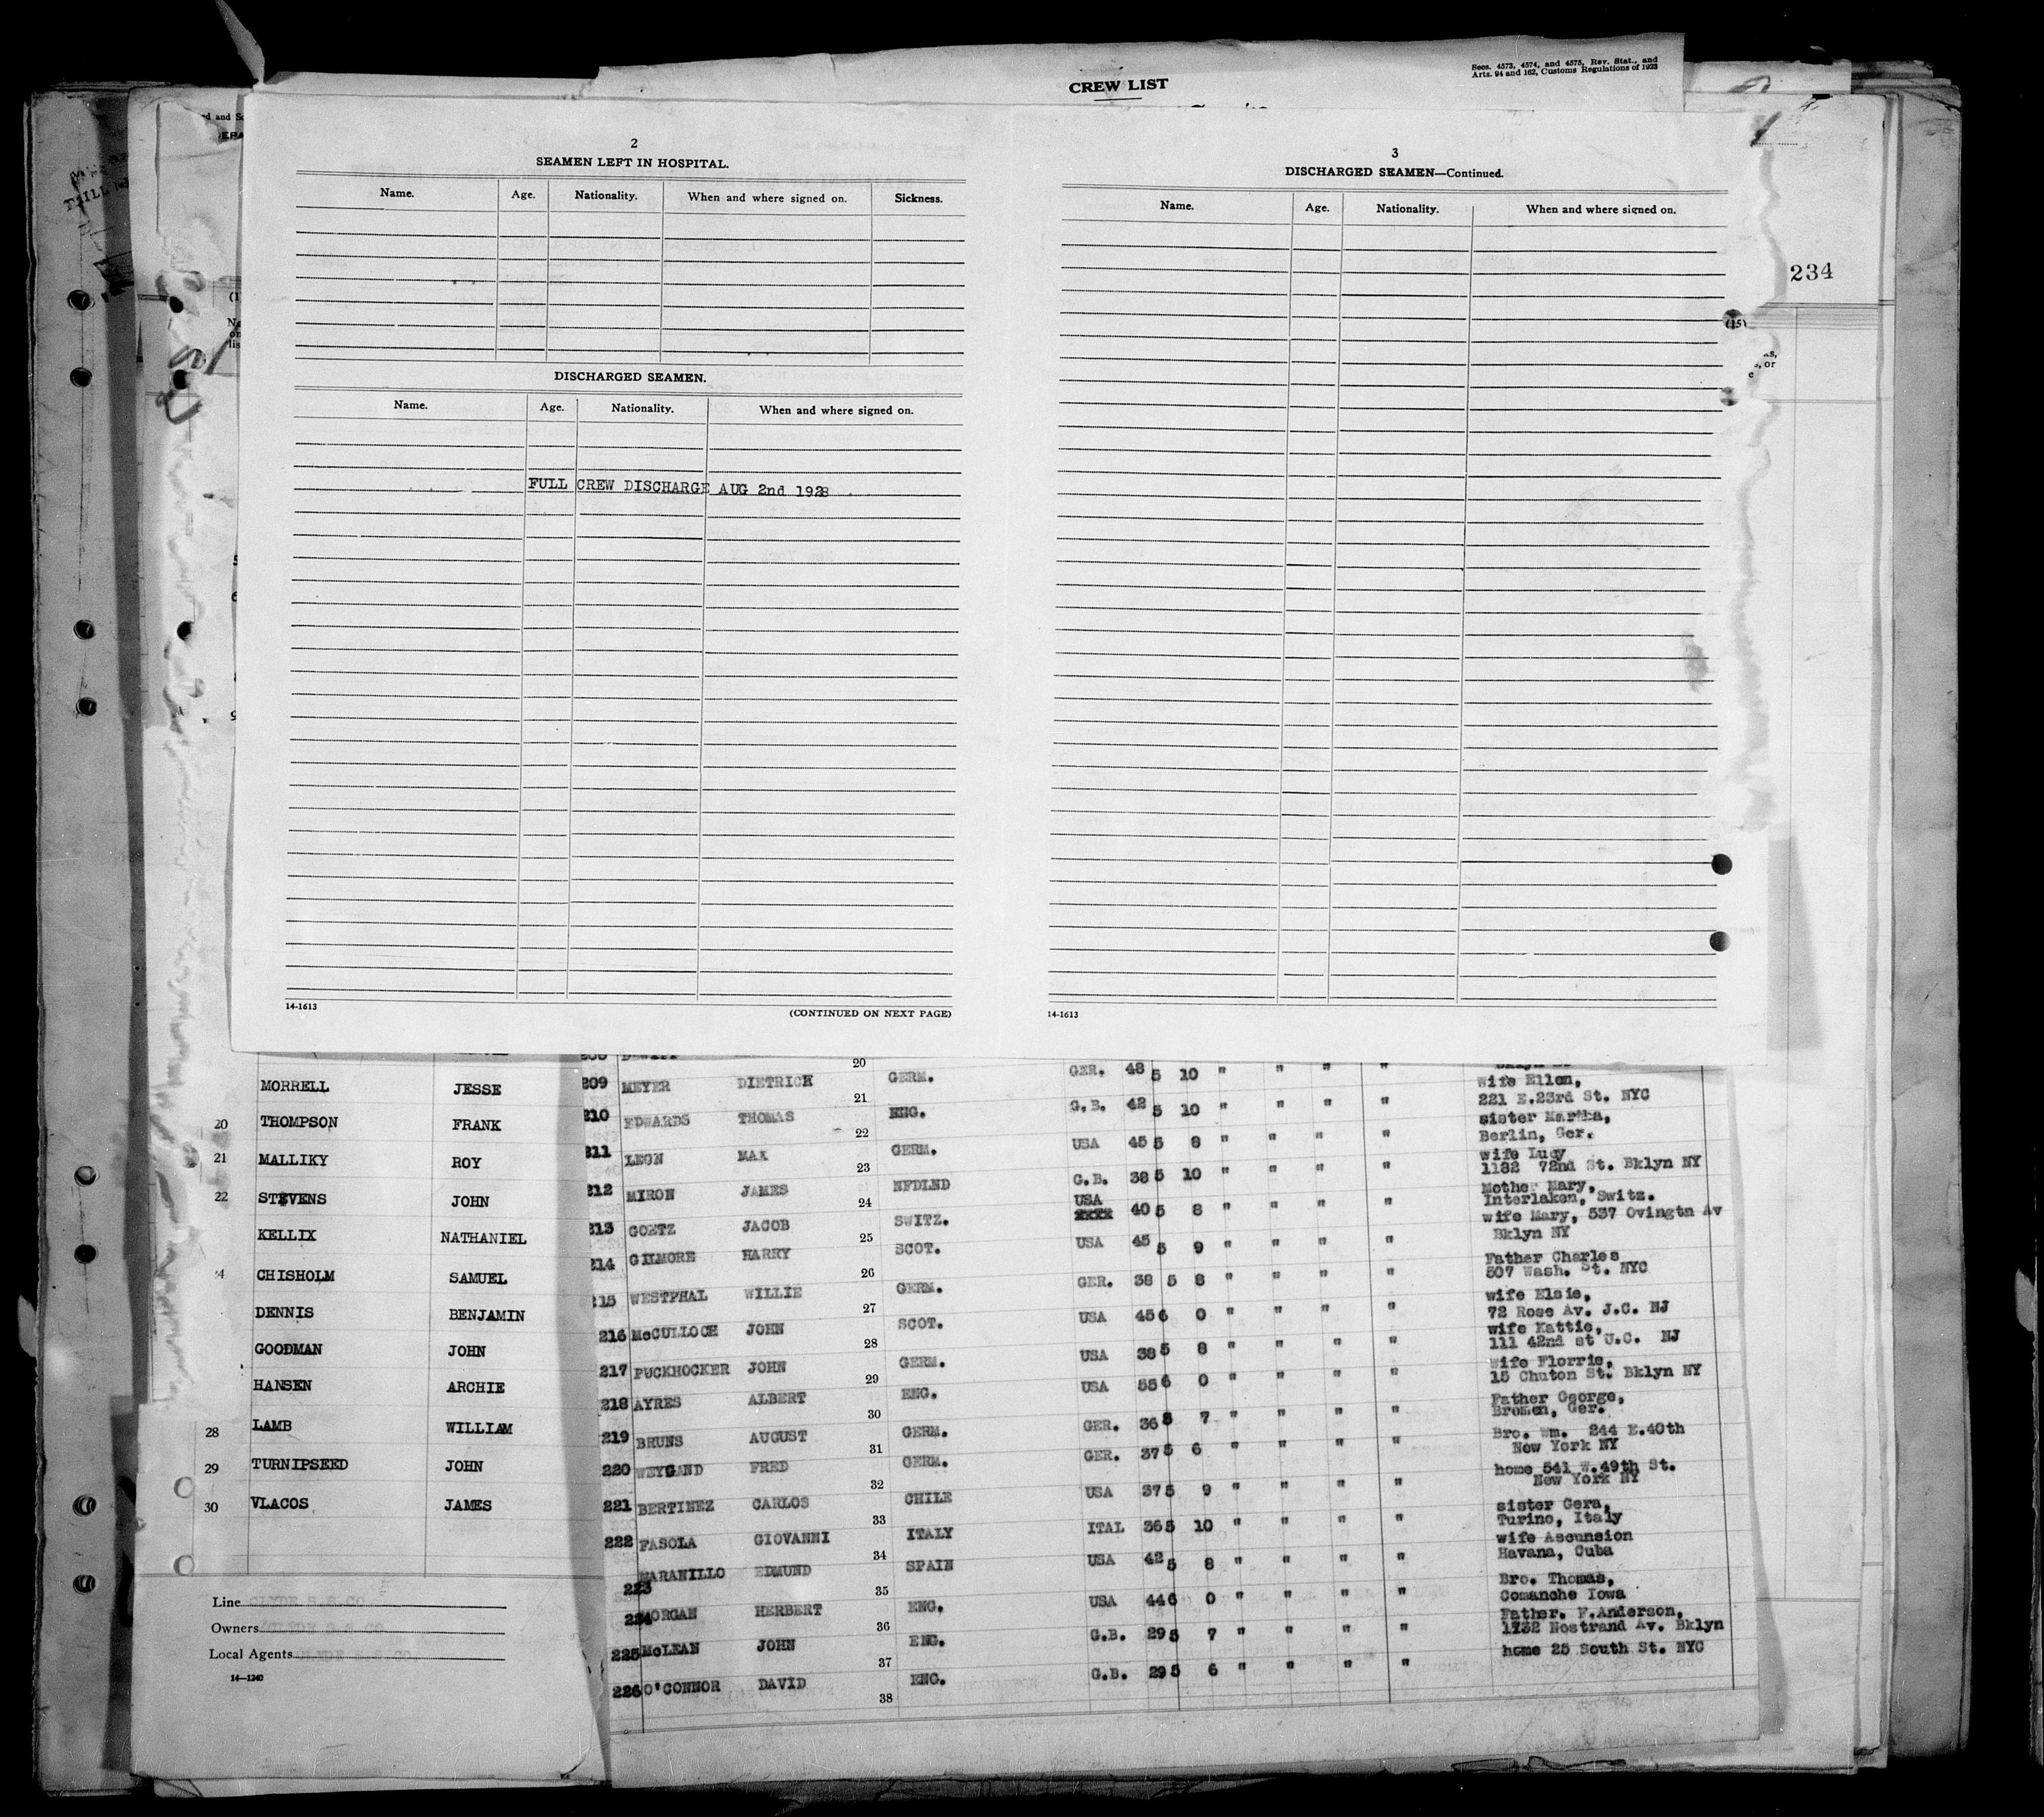 CREW LIST
Secs. 4573, 4574, and 4575, Rev. Stat., and
Arts. 94 and 162, Customs Regulations of 1923
2
SEAMEN LEFT IN HOSPITAL.
Name. Age. Nationality. When and where signed on. Sickness.
DISCHARGED SEAMEN.
Name. Age. Nationality. When and where signed on.
FULL CREW DISCHARGE AUG 2nd 1928
14-1613 (CONTINUED ON NEXT PAGE)
3
DISCHARGED SEAMEN—Continued.
Name. Age. Nationality. When and where signed on.
14-1613
234
(15)
MORRELL JESSE
20 THOMPSON FRANK
21 MALLIKY ROY
22 STEVENS JOHN
KELLIX NATHANIEL
CHISHOLM SAMUEL
DENNIS BENJAMIN
GOODMAN JOHN
HANSEN ARCHIE
28 LAMB WILLIAM
29 TURNIPSEED JOHN
30 VLACOS JAMES
Line CLYDE S.S.CO
Owners CLYDE S.S.CO
Local Agents CLYDE S.S.CO
14—1240
20
209 MEYER DIETRICK GERM. GER. 48 5 10 " " " "
wife Ellen,
21 221 E.23rd St. NYC
210 EDWARDS THOMAS ENG. G.B. 42 5 10 " " " "
sister Martha,
22 Berlin, Ger.
211 LEON MAX GERM. USA 45 5 8 " " " "
wife Lucy
23 1182 72nd St. Bklyn NY
212 MIRON JAMES NFDLND G.B. 38 5 10 " " " "
Mother Mary,
24 Interlaken, Switz.
213 GOETZ JACOB SWITZ. USA xxxx 40 5 8 " " " "
wife Mary, 537 Ovingtn Av
25 Bklyn NY
214 GILMORE HARRY SCOT. USA 45 5 9 " " " "
Father Charles
26 507 Wash. St. NYC
215 WESTPHAL WILLIE GERM. GER. 38 5 8 " " " "
wife Elsie,
27 72 Rose Av. J.C. NJ
216 McCULLOCH JOHN SCOT. USA 45 6 0 " " " "
wife Kattie,
28 111 42nd st U.C. NJ
217 PUCKHOCKER JOHN GERM. USA 38 5 8 " " " "
wife Florrie,
29 15 Chuton St. Bklyn NY
218 AYRES ALBERT ENG. USA 55 6 0 " " " "
Father George,
30 Bremen, Ger.
219 BRUNS AUGUST GERM. GER. 36 5 7 " " " "
Bro. Wm. 244 E.40th
31 New York NY
220 WEYGAND FRED GERM. GER. 37 5 6 " " " "
home 541 W.49th St.
32 New York NY
221 BERTINEZ CARLOS CHILE USA 37 5 9 " " " "
sister Gera,
33 Turino, Italy
222 FASOLA GIOVANNI ITALY ITAL 36 5 10 " " " "
wife Ascunsion
34 Havana, Cuba
223 MARANILLO EDMUND SPAIN USA 42 5 8 " " " "
Bro. Thomas,
35 Comanche Iowa
224 MORGAN HERBERT ENG. USA 44 6 0 " " " "
Father. F.Anderson,
36 1732 Nostrand Av. Bklyn
225 McLEAN JOHN ENG. G.B. 29 5 7 " " " "
37 home 25 South St. NYC
226 O'CONNOR DAVID ENG. G.B. 29 5 6 " " " "
38